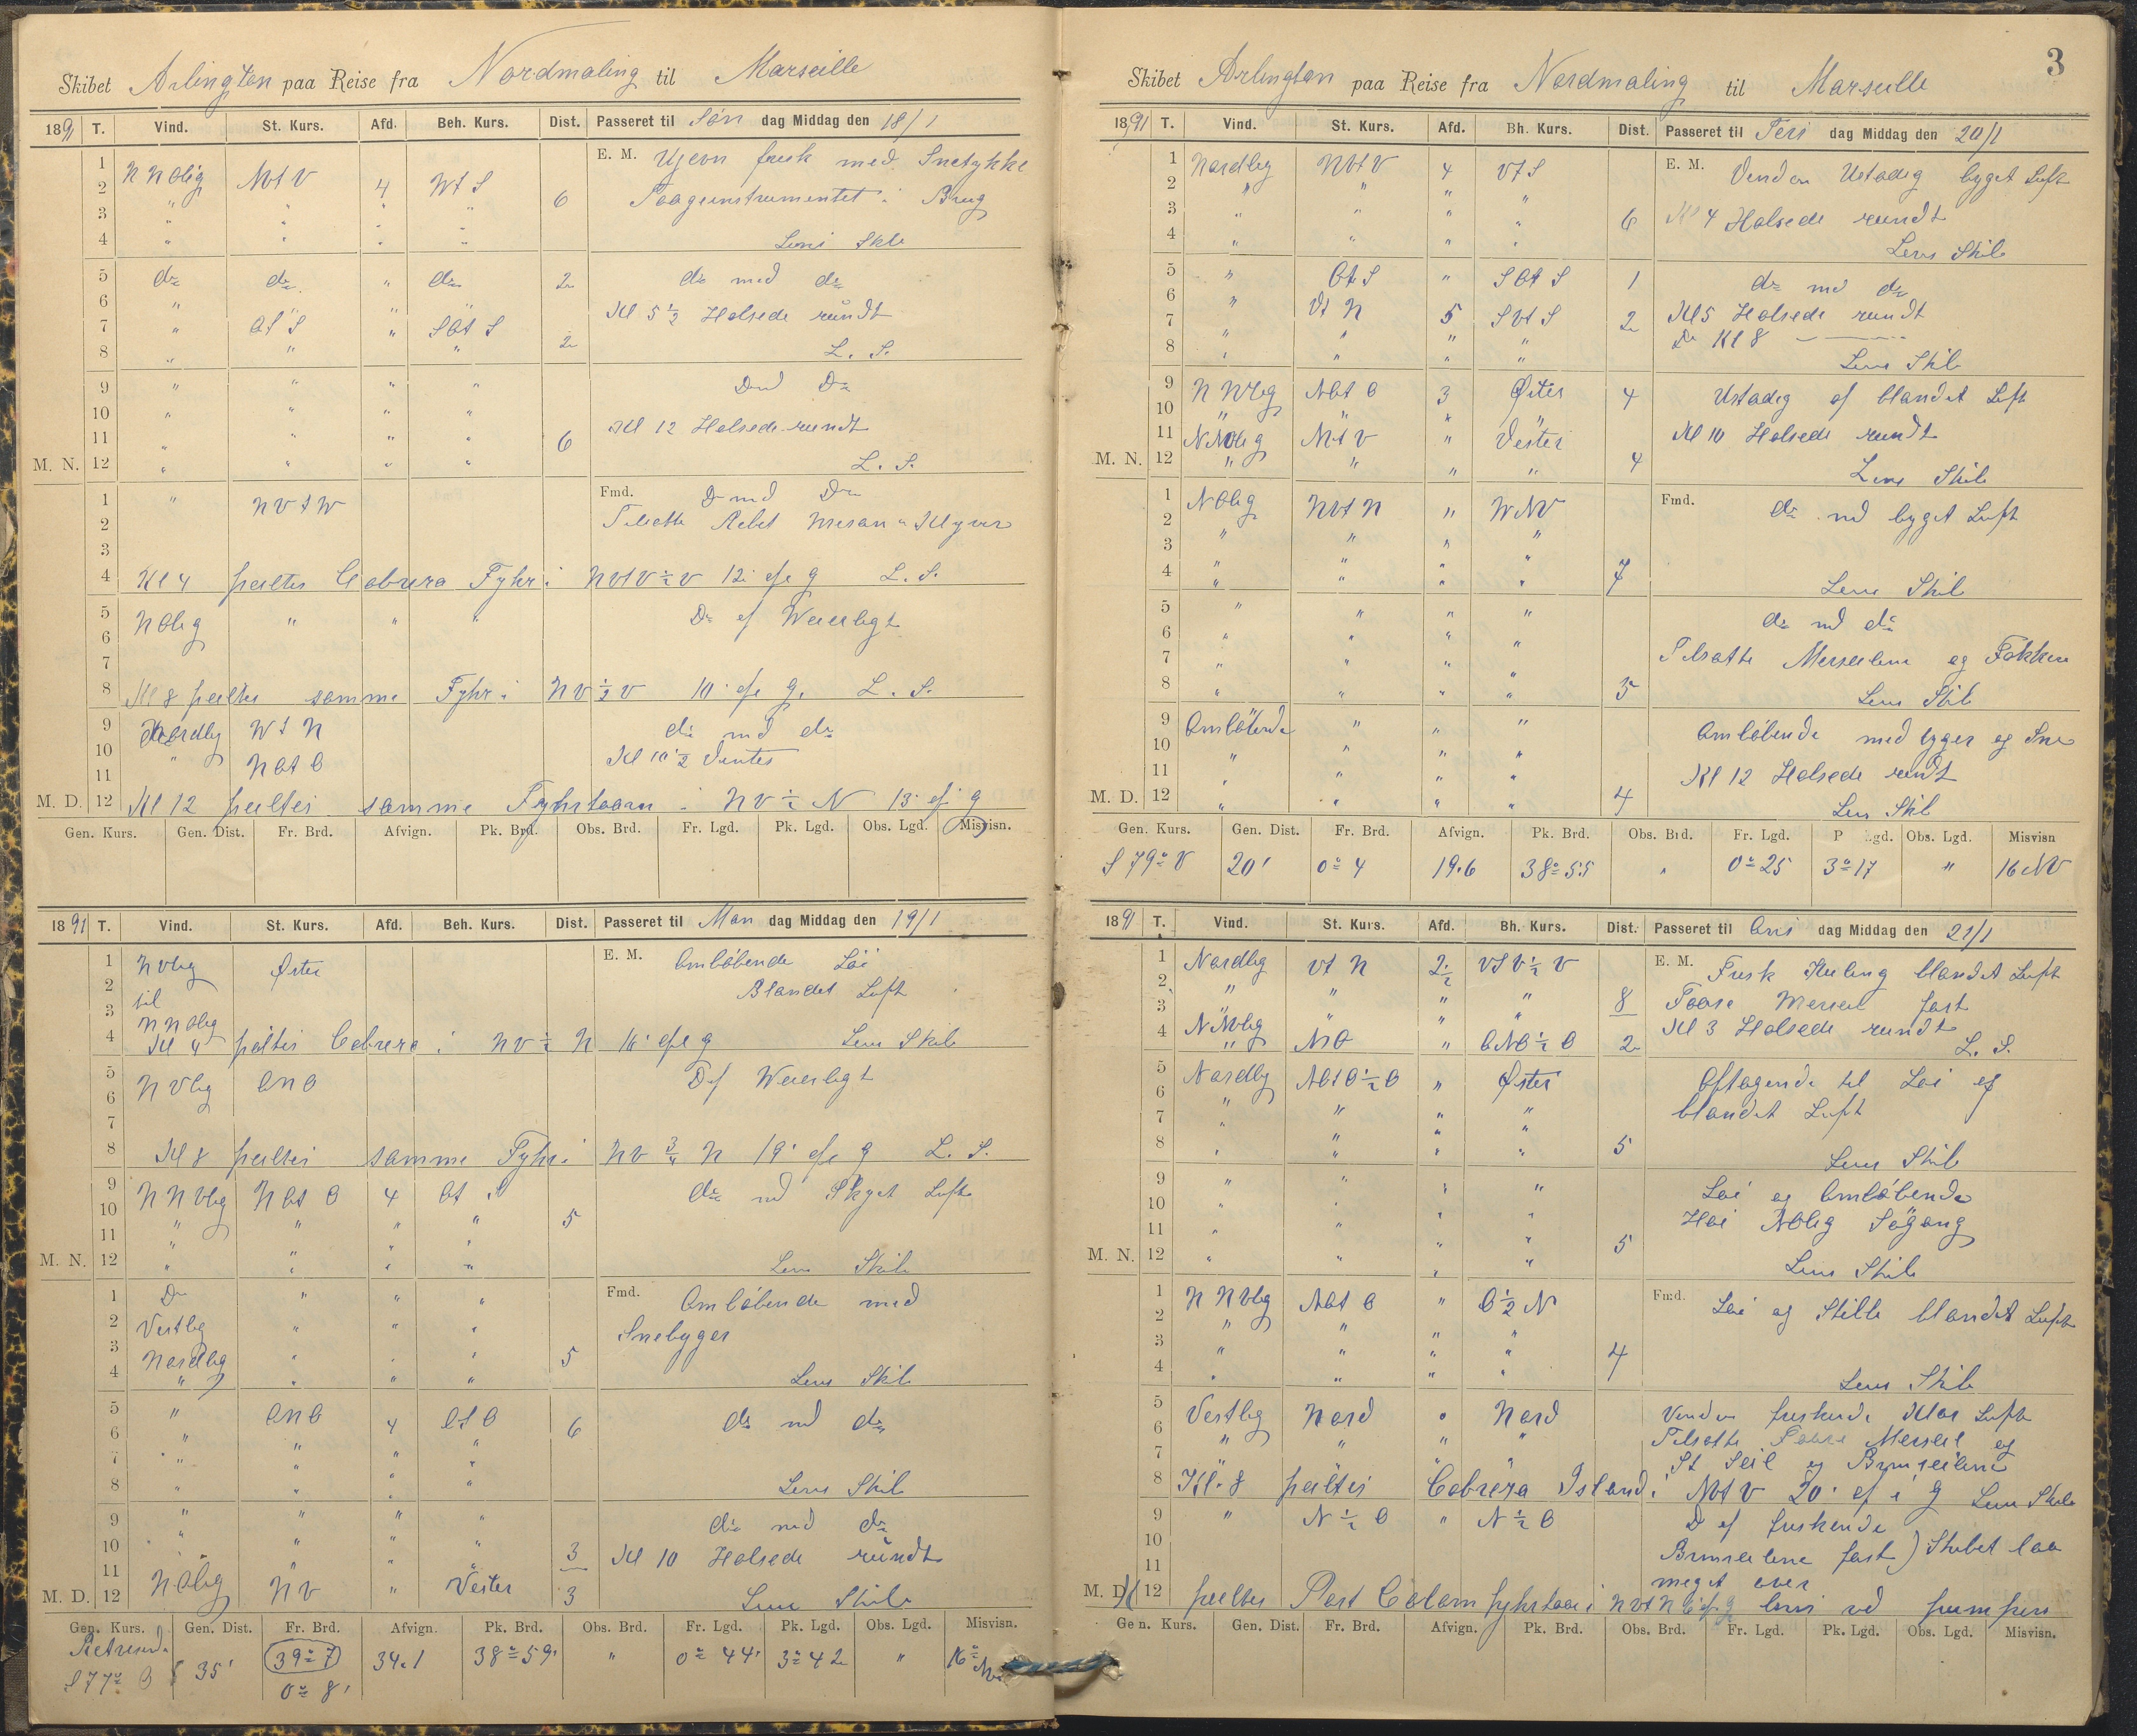 Skibet Arlington paa Reise fra Nordmaling til Marseille
1891 T. Vind. St. Kurs. Afd. Beh. Kurs. Dist. Passeret til Søn dag Middag den 18/1
1 NNOlig NOtV 4 WtS E. M. Ujevn frisk med Snetykke
2 " " " " 6 Taageinstrumentet i Brug
3 " " " "
4 " " " " Lens Skib
5 do do " do 2 do med do
6 " " " " Kl 5 1/2 Halsede rundt
7 " OtS " SOtS 2
8 " " " L. S.
9 " " " " D md Do
10 " " " "
11 " " " " 6 Kl 12 Halsede rundt
M. N. 12 " " " " L. S.
1 " NVtW Fmd. D md Do
2 Tilsatte Rebet Mesan & Klyver
3
4 Kl 4 peiltes Cabrera Fyhr i NVtV 1/2 V 12' af g L. S.
5 NOlig " " " Do of Weierligt
6
7
8 Kl 8 peiltes samme Fyhr i NV 1/2 V 10' af g. L. S.
9 Nordlig WtN do md do
10 " NOtO Kl 10 1/2 Ventes
11
M. D. 12 Kl 12 peiltes samme Fyhrtaarn i NV 1/2 N 13' af g
Gen. Kurs. Gen. Dist. Fr. Brd. Afvign. Pk. Brd. Obs. Brd. Fr. Lgd. Pk. Lgd. Obs. Lgd. Misvisn.
1891 T. Vind. St. Kurs. Afd. Beh. Kurs. Dist. Passeret til Man dag Middag den 19/1
1 NVlig Øster E. M. Omløbende Løi
2 til Blandet Luft
3 NNOlig
4 Kl 4 peiltes Cabrera i NV 1/2 N 16' af g Lens Skib
5 NVlig ONO D of Weierligt
6
7
8 Kl 8 peiltes samme Fyhr i NV 3/4 N 19' af g L. S.
9 NNVlig NOtO 4 OtS do md Skyet Luft
10 " " " " 5
11 " " " "
M. N. 12 " " " " Lens Skib
1 Do " " " Fmd. Omløbende med
2 Vestlig " " " Snebyger
3 Nordlig " " " 5
4 " " " " Lens Skib
5 " ONO 4 OtO 6 do md do
6 " " " "
7 " " " "
8 " " " " Lens Skib
9 " " " " do med do
10 " " " " 3 Kl 10 Halsede rundt
11 NOlig " " "
M. D. 12 NV " Vester 3 Lens Skib
Gen. Kurs. Gen. Dist. Fr. Brd. Afvign. Pk. Brd. Obs. Brd. Fr. Lgd. Pk. Lgd. Obs. Lgd. Misvisn.
S 77° O 35' 39° 7 34.1 38° 59' " 0° 44' 3° 42 " 16° NV
0° 8'
3
Skibet Arlington paa Reise fra Nordmaling til Marseille
1891 T. Vind. St. Kurs. Afd. Bh. Kurs. Dist. Passeret til Tirs dag Middag den 20/1
1 Nordlig NVtV 4 VtS E. M. Vinden Ustadig byget Luft
2 " " " "
3 " " " " 6 Kl 4 Halsede rundt
4 " " " " Lens Skib
5 " OtS " SOtS 1 do md do
6 " VtN 5 SVtS 2 Kl 5 Halsede rundt
7 " " " " Do Kl 8
8 " " " " Lens Skib
9 NNVlig NOtO 3 Øster 4 Ustadig of blandet Luft
10 " " " "
11 NNOlig NVtV " Vester Kl 10 Halsede rundt
M. N. 12 " " " " 4 Lens Skib
1 NOlig NVtN " WNV Fmd. do md byget Luft
2 " " " "
3 " " " "
4 " " " " 7 Lens Skib
5 " " " " do md do
6 " " " "
7 " " " " Tilsatte Merseilene og Fokken
8 " " " " 5 Lens Skib
9 Omløbende " " " Omløbende med byger og Sne
10 " " " "
11 " " " " Kl 12 Halsede rundt
M. D. 12 " " " " 4 Lens Skib
Gen. Kurs. Gen. Dist. Fr. Brd. Afvign. Pk. Brd. Obs. Brd. Fr. Lgd. P lgd. Obs. Lgd. Misvisn
S 79° V 20' 0° 4 19.6 38° 55 " 0° 25 3° 17 " 16 NV
1891 T. Vind. St. Kurs. Afd. Bh. Kurs. Dist. Passeret til Ons dag Middag den 21/1
1 Nordlig VtN 2 1/2 VtV 1/2 V E. M. Frisk Kuling blandet Luft
2 " " " " 8 Foore Merseil fast
3 NNVlig " " " Kl 3 Halsede rundt
4 " NtO " ONO 1/2 O 2 L. S.
5 Nordlig NOtO 1/2 O " Øster Aftagende til Løi of
6 " " " " blandet Luft
7 " " " "
8 " " " " 5 Lens Skib
9 " " " " Løi og Omløbende
10 " " " " Høi NOlig Søgang
11 " " " "
M. N. 12 " " " " 5 Lens Skib
1 NNVlig NOtO " O 1/2 N Fmd. Løi og Stille blandet Luft
2 " " " "
3 " " " " 4
4 " " " " Lens Skib
5 Vestlig Nord " Nord Vinden friskende Klar Luft
6 " " " " Tilsatte Foore Merseil og
7 " " " " St Seil og Bramseilene
8 Kl. 8 peiltes Cabrera Island i NOtV 20' af g Lens Skib
9 " N 1/2 O " N 1/2 O D of friskende
10 Bramseilene fast) Skibet laa
11 meget over
M. D. 12 peiltes Port Colom fyhrtaar i NVtN 6' af g lens ved pumpen
Gen. Kurs. Gen. Dist. Fr. Brd. Afvign. Pk. Brd. Obs. Brd. Fr. Lgd. Pk. Lgd. Obs. Lgd. Misvisn.